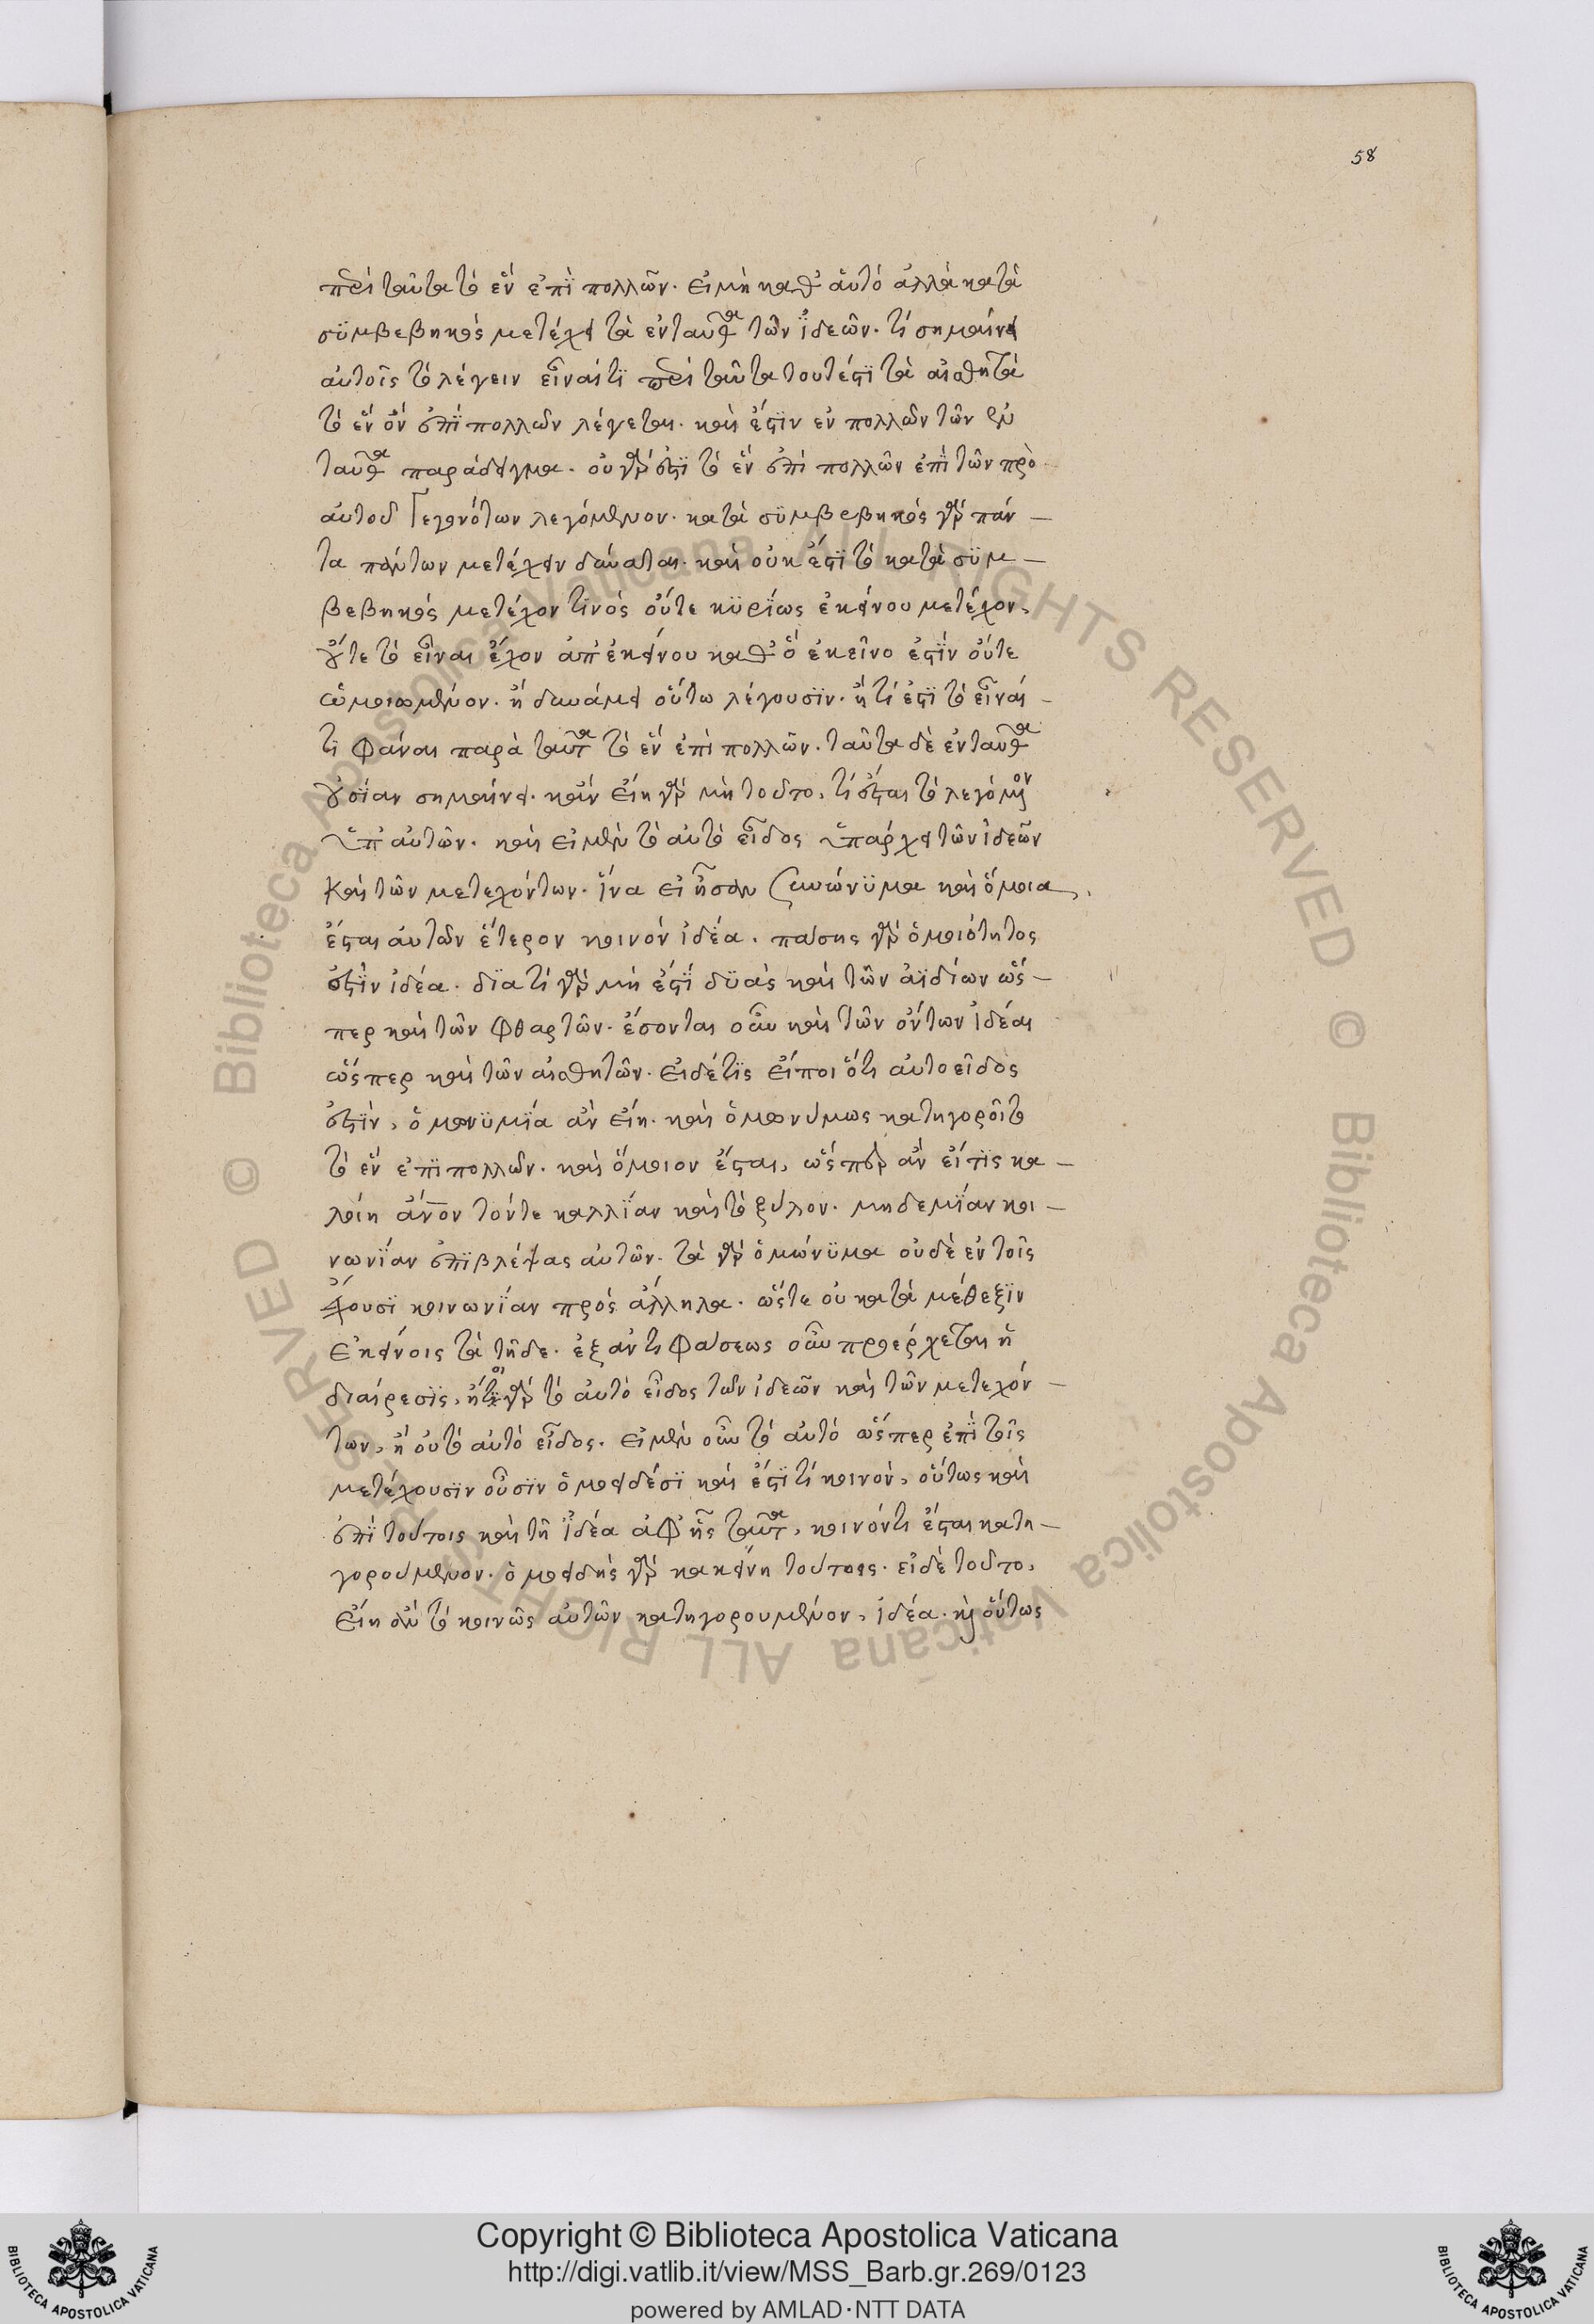 58
περὶ ταῦτα τὸ ἓν ἐπὶ πολλῶν. εἰ μὴ καθ' αὑτό ἀλλὰ κατὰ
συμβεβηκός μετέχει τὰ ἐνταῦθα τῶν ἰδεῶν. τί σημαίνει
αὐτοῖς τὸ λέγειν εἶναί τι περὶ ταῦτα τουτέστι τὰ αἰσθητὰ
τὸ ἓν ὂν ἐπὶ πολλῶν λέγεται. καὶ ἔστιν ἓν πολλῶν τῶν ἐν
ταῦθα παράδειγμα. οὐ γάρ ἐστι τὸ ἓν ἐπὶ πολλῶν ἐπὶ τῶν πρὸ
αὐτοῦ γεγονότων λεγόμενον. κατὰ συμβεβηκός γὰρ πάν–
τα πάντων μετέχειν δύναται. καὶ οὐκ ἔστι τὸ κατὰ συμ–
βεβηκός μετέχον τινός οὔτε κυρίως ἐκείνου μετέχον,
οὔτε τὸ εἶναι ἔχον ἀπ' ἐκείνου καθ' ὅ ἐκεῖνο ἐστίν οὔτε
ὡμοιωμένον. ἢ δυνάμει οὕτω λέγουσιν. ἢ τί ἐστι τὸ εἶναί–
τι φάναι παρὰ ταῦτα τὸ ἓν ἐπὶ πολλῶν. ταῦτα δὲ ἐνταῦθα
οὐσίαν σημαίνει. κἂν εἴη γὰρ μὴ τοῦτο, τί ἔσται τὸ λεγόμενον
ὑπ' αὐτῶν. καὶ εἰ μὲν τὸ αὐτὸ εἶδος ὑπάρχει τῶν ἰδεῶν
καὶ τῶν μετεχόντων. ἵνα εἰ ἦσαν συνώνυμα καὶ ὅμοια,
ἔσται αὐτῶν ἕτερον κοινόν ἰδέα. πάσης γὰρ ὁμοιότητος
ἐστὶν ἰδέα. διατί γὰρ μή ἐστί δυὰς καὶ τῶν ἀϊδίων ὥσ–
περ καὶ τῶν φθαρτῶν. ἔσονται οὖν καὶ τῶν ὄντων ἰδέαι
ὥσπερ καὶ τῶν αἰσθητῶν. εἰ δέ τις εἴποι ὅτι αὐτοεῖδος
ἐστὶν, ὁμωνυμία ἂν εἴη. καὶ ὁμωνύμως κατηγοροῖτο
τὸ ἓν ἐπὶ πολλῶν. καὶ ὅμοιον ἔσται, ὥσπερ ἂν εἴ τις κα–
λοίη ἄνον τόν τε καλλίαν καὶ τὸ ξύλον. μηδεμίαν κοι–
νωνίαν ἐπιβλέψας αὐτῶν. τὰ γὰρ ὁμώνυμα οὐδὲ ἐν τοῖς
ἔχουσι κοινωνίαν πρός ἄλληλα. ὥστε οὐ κατὰ μέθεξιν
ἐκείνοις τὰ τῇδε. ἐξ ἀντιφάσεως οὖν προέρχεται ἡ
διαίρεσις, ἤτοι γὰρ τὸ αὐτό εἶδος τῶν ἰδεῶν καὶ τῶν μετεχόν–
των, ἢ οὐ τὸ αὐτό εἶδος. εἰ μὲν οὖν τὸ αὐτό ὥσπερ ἐπὶ τοῖς
μετέχουσιν οὖσιν ὁμοειδέσι καὶ ἔστι τί κοινόν, οὕτως καὶ
ἐπὶ τούτοις καὶ τῇ ἰδέα ἀφ' ἧς ταῦτα, κοινόν τι ἔσται κατη–
γορούμενον. ὁμοειδής γὰρ κἀκείνη τούτοις. εἰ δὲ τοῦτο,
εἴη ἂν τὸ κοινῶς αὐτῶν κατηγορουμένον, ἰδέα. καὶ οὕτως
Copyright © Biblioteca Apostolica Vaticana
http://digi.vatlib.it/view/MSS_Barb.gr.269/0123
powered by AMLAD·NTT DATA
BIBLIOTECA APOSTOLICA VATICANA
BIBLIOTECA APOSTOLICA VATICANA
© Biblioteca Apostolica Vaticana ALL RIGHTS RESERVED © Biblioteca Apostolica Vaticana ALL RIGHTS RESERVED